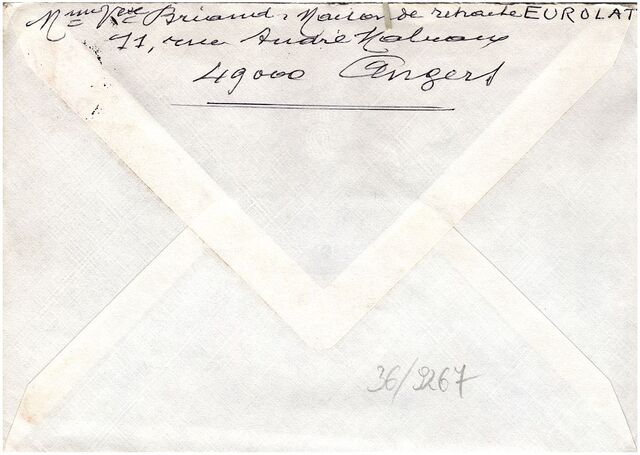 Mme Vve Briand. Maison de retraite EUROLAT
11, rue André Malraux
49000 Angers
36/9267